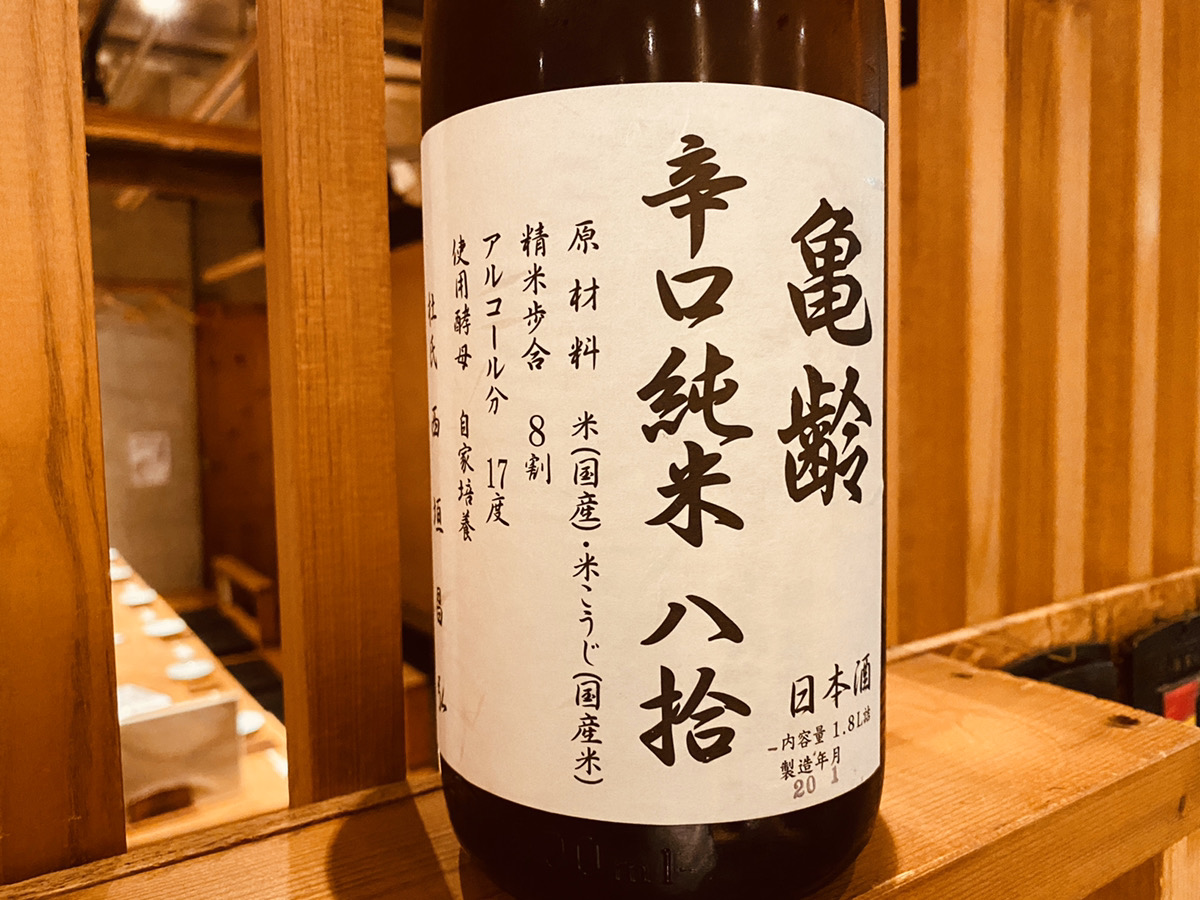 亀齢
辛口純米 八拾
日本酒
内容量 1.8L詰
製造年月
20 1
原材料 米(国産)・米こうじ(国産米)
精米歩合 8割
アルコール分 17度
使用酵母 自家培養
杜氏 西垣昌弘